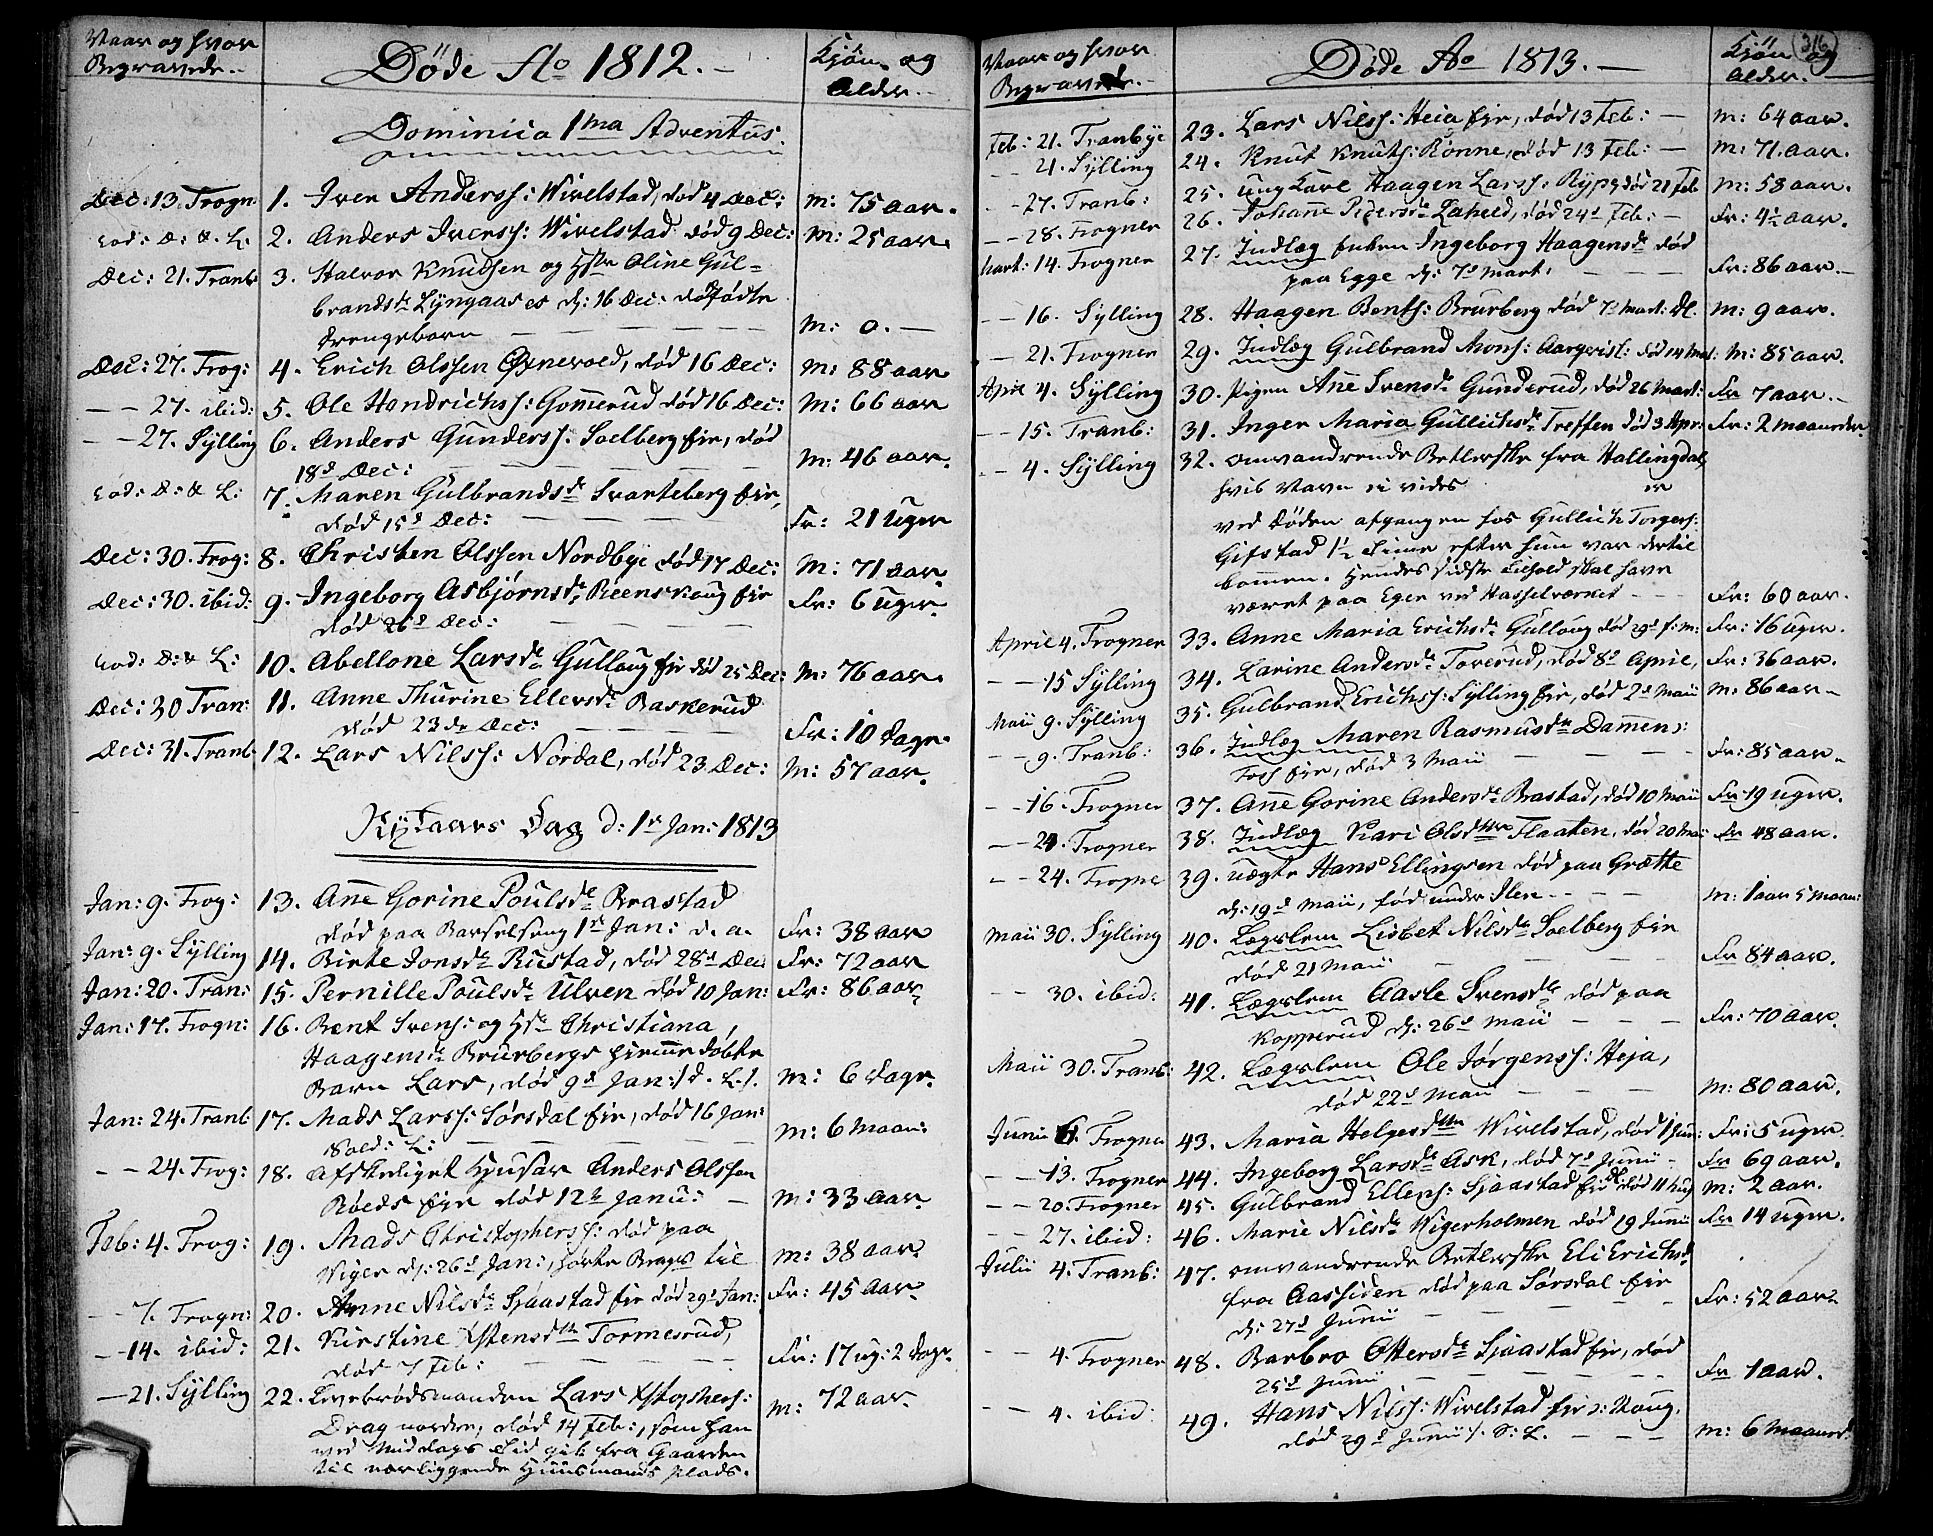 Naar og hvor
Begravede.
Døde Ao 1812.
Kjön og
Alder.
Dominica 1ma Adventus.
Dec: 13. Trogn: 1. Iver Anderss: Wivelstad, død 4 Dec: M: 75 aar.
eod: D: & L: 2. Anders Iverss: Wivelstad død 9 Dec: M: 25 aar.
Dec: 21. Tranb: 3. Halvor Knudsen og Hstr Oline Gul=
brandsdr Lyngaas es d: 16 Dec: dødfødte
drengebarn M: 0.
Dec: 27. Frog: 4. Erich Olssen Øxnevold, død 16 Dec: M: 88 aar
27. ibid: 5. Ole Hendrichs: Gomerud død 16 Dec: M: 66 aar
27. Sylling 6. Anders Gunderss: Soelberg eje, død
18d Dec: M: 46 aar.
eod: D: & L: 7. Maren Gulbrandsdr Svarteberg eje,
død 15d Dec: Fr: 21 Uger
Dec: 30. Frog: 8. Christen Olssen Nordbye død 17 Dec: M: 71 aar.
Dec: 30. ibid: 9. Ingeborg Asbjørnsdr Reenskoug eje
død 26d Dec: Fr: 6 uger.
eod: D: & L: 10. Abellone Larsdr Gulloug eje død 25 Dec: M: 76 aar.
Dec: 30 Tran: 11. Anne Thurine Ellersdr Baskerud
død 23de Dec: Fr: 10 dage.
Dec: 31. Tranb: 12. Lars Nilss: Nordal, død 23 Dec: M: 57 aar.
Nytaars Dag d: 1r Jan: 1813
Jan: 9. Frog: 13. Ane Gorine Poulsdr Brastad
død paa Barselseng 1r Jan: d. a. Fr: 38 aar
Jan: 9. Sylling 14. Birte Jonsdr Rustad, død 28d Dec: Fr: 72 aar
Jan: 20. Tran: 15. Pernille Poulsdr Ulven død 10 Jan: Fr: 86 aar.
Jan: 17. Frogn: 16. Bent Svens: og Hstr Christiana
Haagensdr Brurbergs hjemmedøbte
Barn Lars, død 9d Jan: M: 6 dage.
Jan: 24. Tranb: 17. Mads Larss: Sørsdal eje, død 16 Jan:
M: 6 Maan:
24. Frog: 18. Afskediget Husar Anders Olssen
Røeds eje død 12te Janu: M: 33 aar.
Feb: 4. Frog: 19. Mads Christophers: død paa
Viger d: 26d Jan:, til M: 38 aar.
7. Frogn: 20. Anne Nilsdr Sjaastad eje død 29d Jan: Fr: 45 aar.
14. ibid: 21. Kirstine Xstensdtr Tormesrud,
død 7 Feb: Fr: 17 ug: 2 dage.
21. Sylling 22. Levebrødsmanden Lars Xstophers:
Drag nordre, død 14 Feb:, som han M: 72 aar.
ved Middags Tid gik fra Gaarden
til nærliggende Huusmands plads.
Naar og hvor
Begravede.
Døde Ao 1813.
Kjön og
Alder.
316
Feb: 21. Tranbye 23. Lars Nilss: Heia eje, død 13 Feb: M: 64 aar.
21. Sylling 24. Knut Knuts: Rønne, død 13 Feb: M: 71 aar.
27. Tranb: 25. Ung Karl Haagen Larss: Rype død 21 Feb M: 58 aar.
28. Frogner 26. Johane Pedersdr Laheld, død 24d Feb: Fr: 4½ aar.
Mart: 14. Frogner 27. Indlæg Enken Ingeborg Haagensdr død
paa Egge d: 7d Mart: Fr: 86 aar.
16. Sylling 28. Haagen Bents: Brurberg død 7d Mart: M: 9 aar.
21. Frogner 29. Indlæg Gulbrand Mons: Aarqvisl: død 14 Mar: M: 85 aar.
April 4. Sylling 30. Pigen Ane Svensdr Gunderud, død 26 Mart: Fr 7 aar.
15. Tranb: 31. Inger Maria Gullichsdr Treffen død 3 Apr: Fr: 2 maaneder
4. Sylling 32. omvandrende Betlerske fra Hallingdal,
hvis Navn ei vides er
ved Døden afgangen hos Gullich Torgers:
Gifstad 1½ Time efter hun var dertil
kommen. Hendes sidste Tilhold skal have
været paa Eger ved Hasselværket Fr: 60 aar.
April 4. Frogner 33. Anne Maria Erichsdr Gulloug død 29d f: m: Fr: 16 uger.
15 Sylling 34. Larine Andersdr Toverud, død 8d April, Fr: 36 aar.
Maii 9. Sylling 35. Gulbrand Erichss: Sylling eje, død 2d Maii M: 86 aar
9. Tranb: 36. Indlæg Maren Rasmusdr Damen
eje, død 3 Maii Fr: 85 aar.
16. Frogner 37. Ane Gorine Andersdr Brastad, død 10 Maii Fr 19 uger.
24. Frogner 38. Indlæg Kari Olsdttr Flaaten, død 20 Maii Fr 48 aar.
24. Frogne 39. uægte Hans Ellingsen død paa Grætte
d: 19d Maii, fød under Ilen M: 1 aar 5 maan:
Maii 30. Sylling 40. Lægslem Lisbet Nilsdr Soelberg eje
død 21 Maii Fr 84 aar.
30. ibid: 41. Lægslem Aasle Svensdtr død paa
Kopperud d: 26d Maii Fr: 70 aar.
Maii 30. Tranb: 42. Lægslem Ole Jørgenss: Heja,
død 22d Maii M: 80 aar.
Junii 6. Frogner 43. Maria Helgesdtter Wivelstad, død 1 Jun: Fr: 5 uger.
13. Frogner 44. Ingeborg Larsdr Ask, død 7d Junii Fr 69 aar.
20. Frogner 45. Gulbrand Ellens: Sjaastad eje død 11 M: 2 aar.
27. ibid: 46. Marie Nilsdr Vigerholmen død 19 Junii Fr 14 uger.
Julii 4. Tranb: 47. omvandrende Betlerske Eli Erichsdr
fra Aassiden død paa Sørsdal eje
d: 27d Junii Fr: 52 aar.
4. Frogner 48. Barbro Ottersdr Sjaastad eje, død
25d Junii Fr 1 aar.
4. ibid: 49. Hans Nilss: Wivelstad eje Haug.
død 29d Junii M: 6 Maaned: